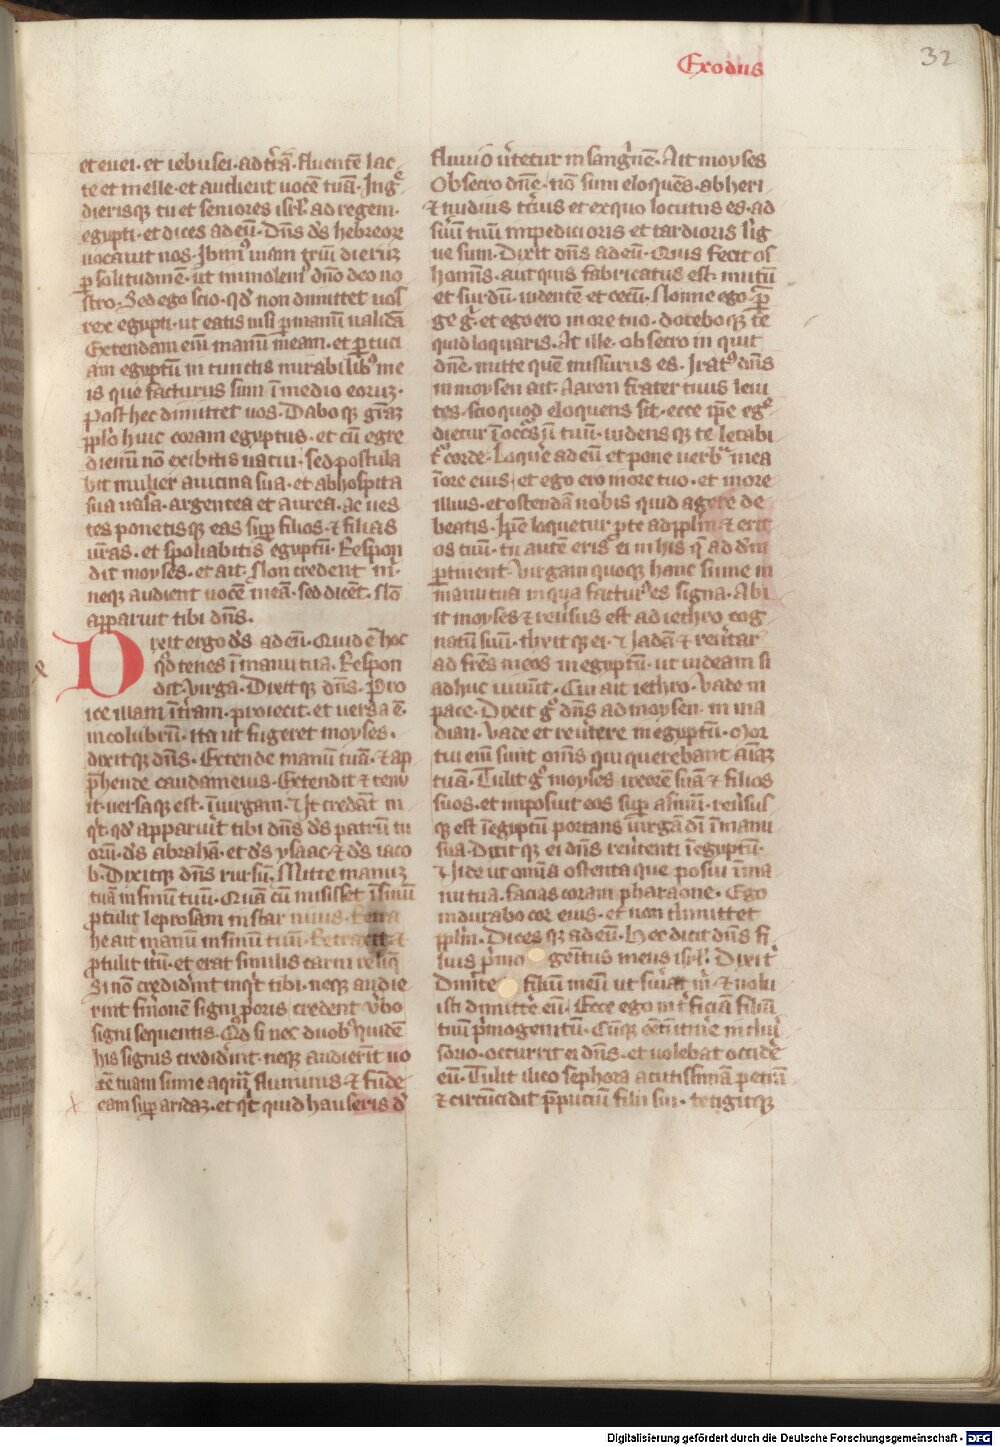 Exodus
32
et euei · et iebusei · ad tr̄ā · fluentē lac-
te et melle · et audient uocē tuā · Ingͤ
dierisqꝫ tu et seniores isrl̄ · ad regem ·
egypti · et dices ad eū · Dn̄s ds̄ hebreorꝫ
uocauit nos · Ibimꝰ uiam triū dierūꝫ
ꝑ solitudinē · ut immolem dn̄o deo no
stro · Sed ego scio · qd̄ non dimittet uos
rex egypti · ut eatis nisi ꝑ manū ualidā
Extendam eīm manū meam · et ꝑcuci
am egyptū in cunctis mirabilibꝰ me
is que facturus sum ī medio eorūꝫ ·
Post hec dimittet uos · Dabo qꝫ grāꝫ
ppl̄o huic coram egyptiis · et cū egre
diemī nō exibitis uacui · sed postula
bit mulier a uicina sua · et ab hospita
sua uasa · argentea et aurea · ac ues
tes ponetisqꝫ eas suꝑ filios · ⁊ filias
ur̄as · et spoliabitis egyptū · Respon
dit moyses · et ait · Non credent m̄ ·
neqꝫ audient uocē meā · sed dicēt · Nō
apparuit tibi dn̄s ·
Dixit ergo ds̄ ad eū · Quid ē hoc
qd̄ tenes ī manu tua · Respon
dit · uirga · Dixit qꝫ dn̄s · Pro
ice illam ī tr̄am · proiecit · et uersa ē ·
in colubrū · ita ut fugeret moyses ·
dixitqꝫ dn̄s · Extende manū tuā · ⁊ ap
p̄hende caudam eius · Extendit ⁊ tenu
it · uersa qꝫ est · ī uirgam · Ut credāt in
qͥt · qd̄ apparuīt tibi dn̄s ds̄ patrū tu
orū · ds̄ abrahā · et ds̄ ysaac · ⁊ ds̄ iaco
b · Dixitqꝫ dn̄s rursū · Mitte manuꝫ
tuā in sinū tuū · Quā cū misisset ī sinū
ꝓtulit leprosam in star niuis · Retra
he ait manū in sinū tuū · Retraxit · ⁊
ꝓtulit itūꝫ · et erat similis carni reliq̄
Si nō credid̄int inqͥt tibi · neqꝫ audie
rint sm̄onē signi p̄oris · credent u̔bo
signi sequentis · Qd̄ si nec duobꝰ quidē
his signis credid̄int · neqꝫ audierīt uo
cē tuam sume aquā fluminis · ⁊ fūde
eam suꝑ aridaꝫ · et qͥcquid hauseris d̄
fluuio u̔tetur in sangͥnē · Ait moyses
Obsecro dn̄e · nō sum eloquēs · ab heri
⁊ nudius tc̄ius et ex quo locutus es · ad
suū tuū impedicioris et tardioris lig
ue sum · Dixit dn̄s ad eū · Quis fecit os
homīs · aut quis fabricatus est · mutū
et surdū · uidentē et cecū · Nonne ego · ꝑ
ge gͦ · et ego ero in ore tuo · docebo qꝫ te
quid loquaris · At ille · obsecro in quit
dn̄e · mitte quē missurus es · Iratꝰ dn̄s
in moysen ait · Aaron frater tuus leui
tes · scio quod eloquens sit · ecce ip̄e egͤ
dietur ī occͬsū tuū · uidens qꝫ te letabi
tͬ corde · Loqͥe ad eū et pone uerba mea
ī ore eius · et ego ero in ore tuo · et in ore
illius · et ostendā uobis quid agere de
beatis · Ip̄e loquetur ꝓ te ad ppl̄m ⁊ erit
os tuū · tu autē eris ei in his q̄ ad dm̄
ꝑtinent · Uirgam quoqꝫ hanc sume in
manu tua in qua facturꝰ es signa · Abi
it moyses ⁊ reu̔sus est ad iethro cog
natū suū · dixit qꝫ ei · Uadā ⁊ reu̔tar
ad fr̄es meos in egyptū · ut uideam si
adhuc uiuūt · Cui ait iethro · Uade in
pace · Dixit gͦ dn̄s ad moysen in ma
dian · Uade et reu̔tere in egyptū · Mor
tui eīm sunt om̄s qui querebant aīaꝫ
tuā · Tulit gͦ moyses uxorē suā ⁊ filios
suos · et imposuit eos suꝑ asinū · reu̔sus
qꝫ est ī egyptū portans uirgā dī ī manu
sua · Dixit qꝫ ei dn̄s reu̔tenti ī egyptū ·
Uide ut om̄ia ostenta que posui ī ma
nu tua · facias coram pharaone · Ego
indurabo cor eius · et non dimittet
ppl̄m · Dices qꝫ ad eū · Hec dicit dn̄s fi
lius p̄mogenitus meus isrl̄ · Dixi t̄
Dimitte filiū meū ut s̄uiat m̄ · ⁊ nolu
isti dimitt̄e eū · Ecce ego int̄ficiā filiū
tuū p̄mogenitū · Cūqꝫ eēt itine in diu̔
sorio · occurrit ei dn̄s · et uolebat occid̄e
eū · Tulit ilico sephora acutissimā petrā
⁊ circūcidit p̄puciū filii sui · tetigitqꝫ
Digitalisierung gefördert durch die Deutsche Forschungsgemeinschaft - DFG